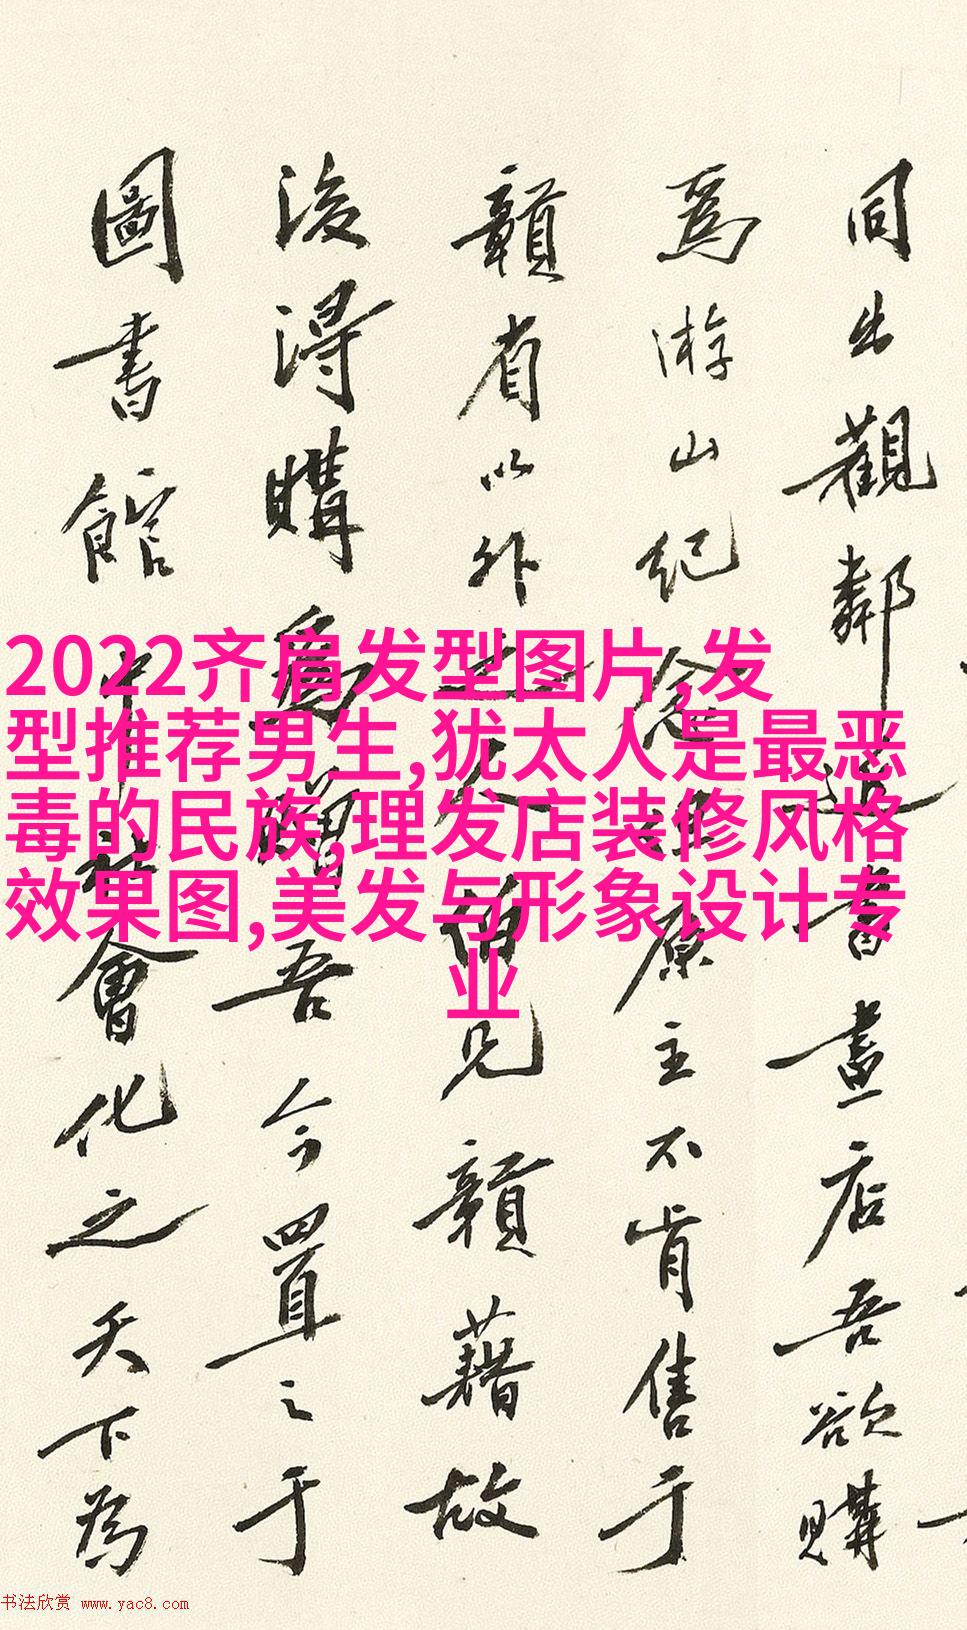 同出觀鄰書畫店吾欲購
爲游山紀念原主不肯售于
贛省以外之人伯兄贛藉故
後得購爲贈吾今置之于
圖書館中會化之天下為
2022齐肩发型图片,发
型推荐男生,犹太人是最恶
毒的民族,理发店装修风格
效果图,美发与形象设计专
业
书法欣赏 www.yac8.com